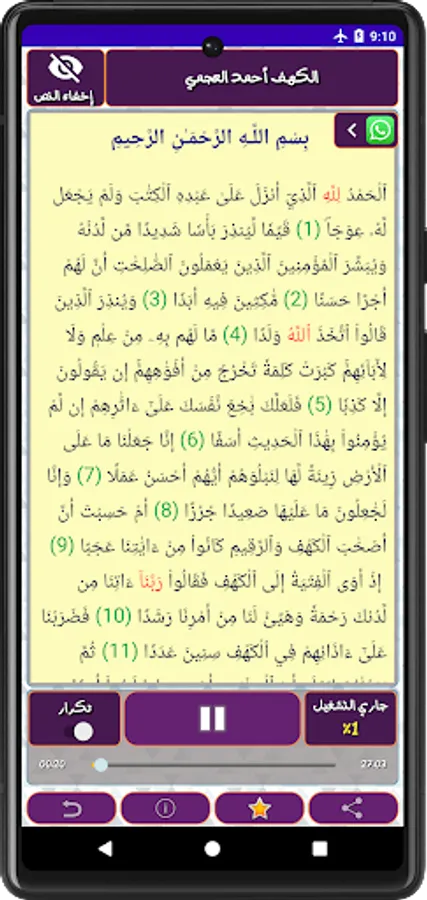 9:10
إخفاء النص
الكهف أحمد العجمي
بِسْمِ اللَّهِ الرَّحْمَٰنِ الرَّحِيمِ
ٱلْحَمْدُ لِلَّهِ ٱلَّذِيٓ أَنزَلَ عَلَىٰ عَبْدِهِ ٱلْكِتَٰبَ وَلَمْ يَجْعَل
لَّهُۥ عِوَجَاۜ (1) قَيِّمٗا لِّيُنذِرَ بَأۡسٗا شَدِيدٗا مِّن لَّدُنۡهُ
وَيُبَشِّرَ ٱلۡمُؤۡمِنِينَ ٱلَّذِينَ يَعۡمَلُونَ ٱلصَّٰلِحَٰتِ أَنَّ لَهُمۡ
أَجۡرًا حَسَنٗا (2) مَّٰكِثِينَ فِيهِ أَبَدٗا (3) وَيُنذِرَ ٱلَّذِينَ
قَالُواْ ٱتَّخَذَ ٱللَّهُ وَلَدٗا (4) مَّا لَهُم بِهِۦ مِنۡ عِلۡمٖ وَلَا
لِأٓبَآئِهِمۡۚ كَبُرَتۡ كَلِمَةٗ تَخۡرُجُ مِنۡ أَفۡوَٰهِهِمۡۚ إِن يَقُولُونَ
إِلَّا كَذِبٗا (5) فَلَعَلَّكَ بَٰخِعٞ نَّفۡسَكَ عَلَىٰٓ ءَاثَٰرِهِمۡ إِن لَّمۡ
يُؤۡمِنُواْ بِهَٰذَا ٱلۡحَدِيثِ أَسَفًا (6) إِنَّا جَعَلۡنَا مَا عَلَى
ٱلۡأَرۡضِ زِينَةٗ لَّهَا لِنَبۡلُوَهُمۡ أَيُّهُمۡ أَحۡسَنُ عَمَلٗا (7) وَإِنَّا
لَجَٰعِلُونَ مَا عَلَيۡهَا صَعِيدٗا جُرُزًا (8) أَمۡ حَسِبۡتَ أَنَّ
أَصۡحَٰبَ ٱلۡكَهۡفِ وَٱلرَّقِيمِ كَانُواْ مِنۡ ءَايَٰتِنَا عَجَبًا (9)
إِذۡ أَوَى ٱلۡفِتۡيَةُ إِلَى ٱلۡكَهۡفِ فَقَالُواْ رَبَّنَآ ءَاتِنَا مِن
لَّدُنكَ رَحۡمَةٗ وَهَيِّئۡ لَنَا مِنۡ أَمۡرِنَا رَشَدٗا (10) فَضَرَبۡنَا
عَلَىٰٓ ءَاذَانِهِمۡ فِي ٱلۡكَهۡفِ سِنِينَ عَدَدٗا (11) ثُمَّ
جاري التشغيل
x1
تكرار
00:20
27:03